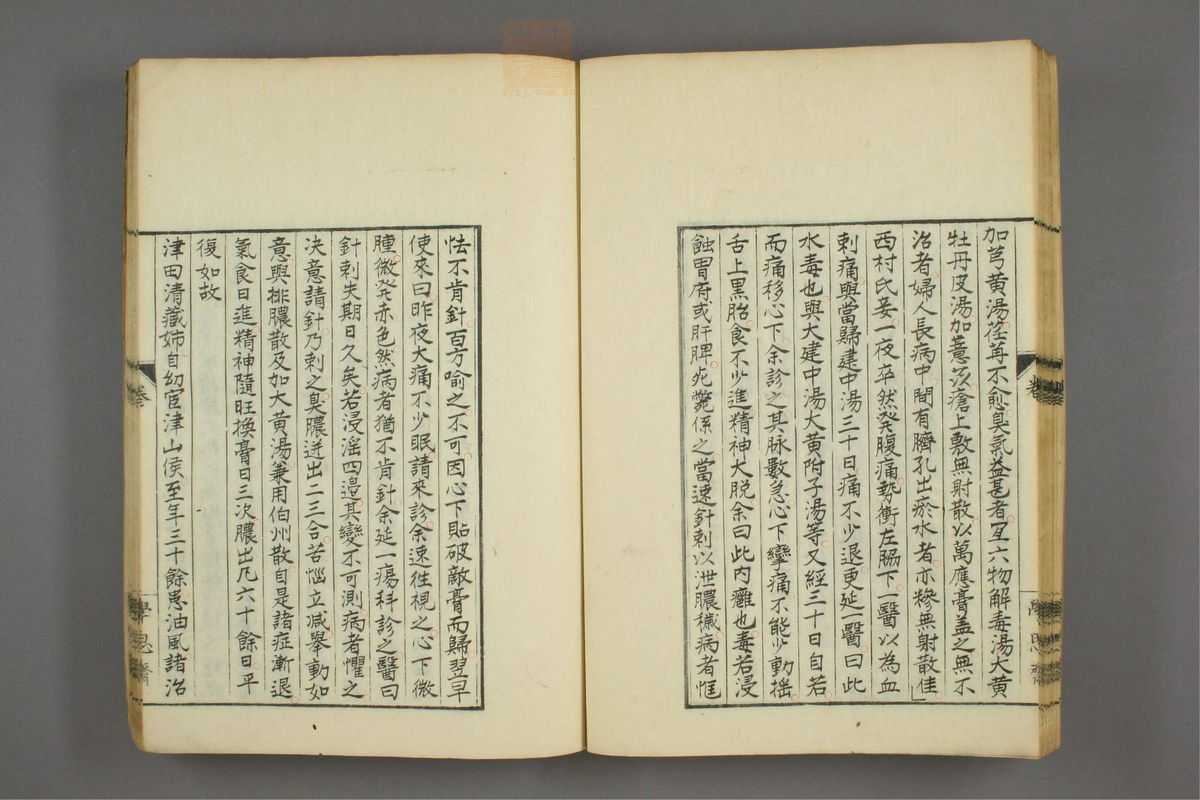 加芎黄湯荏苒不愈臭氣益甚者宜六物解毒湯大黄
牡丹皮湯加薏苡瘡上敷無射散以萬應膏盖之無不
治者婦人長病中間有臍孔出瘀水者亦糝無射散佳
西村氏妾一夜卒然發腹痛勢衝左脇下一醫以為血
刺痛與當歸建中湯三十日痛不少退更延一醫曰此
水毒也與大建中湯大黄附子湯等又經三十日自若
而痛移心下余診之其脉數急心下攣痛不能少動揺
舌上黒胎食不少進精神大脱余曰此内癰也毒若浸
蝕胃府或肝脾死斃係之當速針刺以泄膿穢病者恇
怯不肯針百方喻之不可因心下貼破敵膏而歸翌早
使來曰昨夜大痛不少眠請來診余速徃視之心下微
腫微發赤色然病者猶不肯針余延一瘍科診之醫曰
針刺失期日久矣若浸淫四邉其變不可測病者懼之
决意請針乃刺之臭膿迸出二三合苦惱立减舉動如
意與排膿散及如大黄湯兼用伯州散自是諸症漸退
氣食日進精神隨旺換膏日三次膿出凡六十餘日平
復如故
津田清藏姉自幼宦津山侯至年三十餘患油風諸治
卷
學思齋
zysj.com.cn